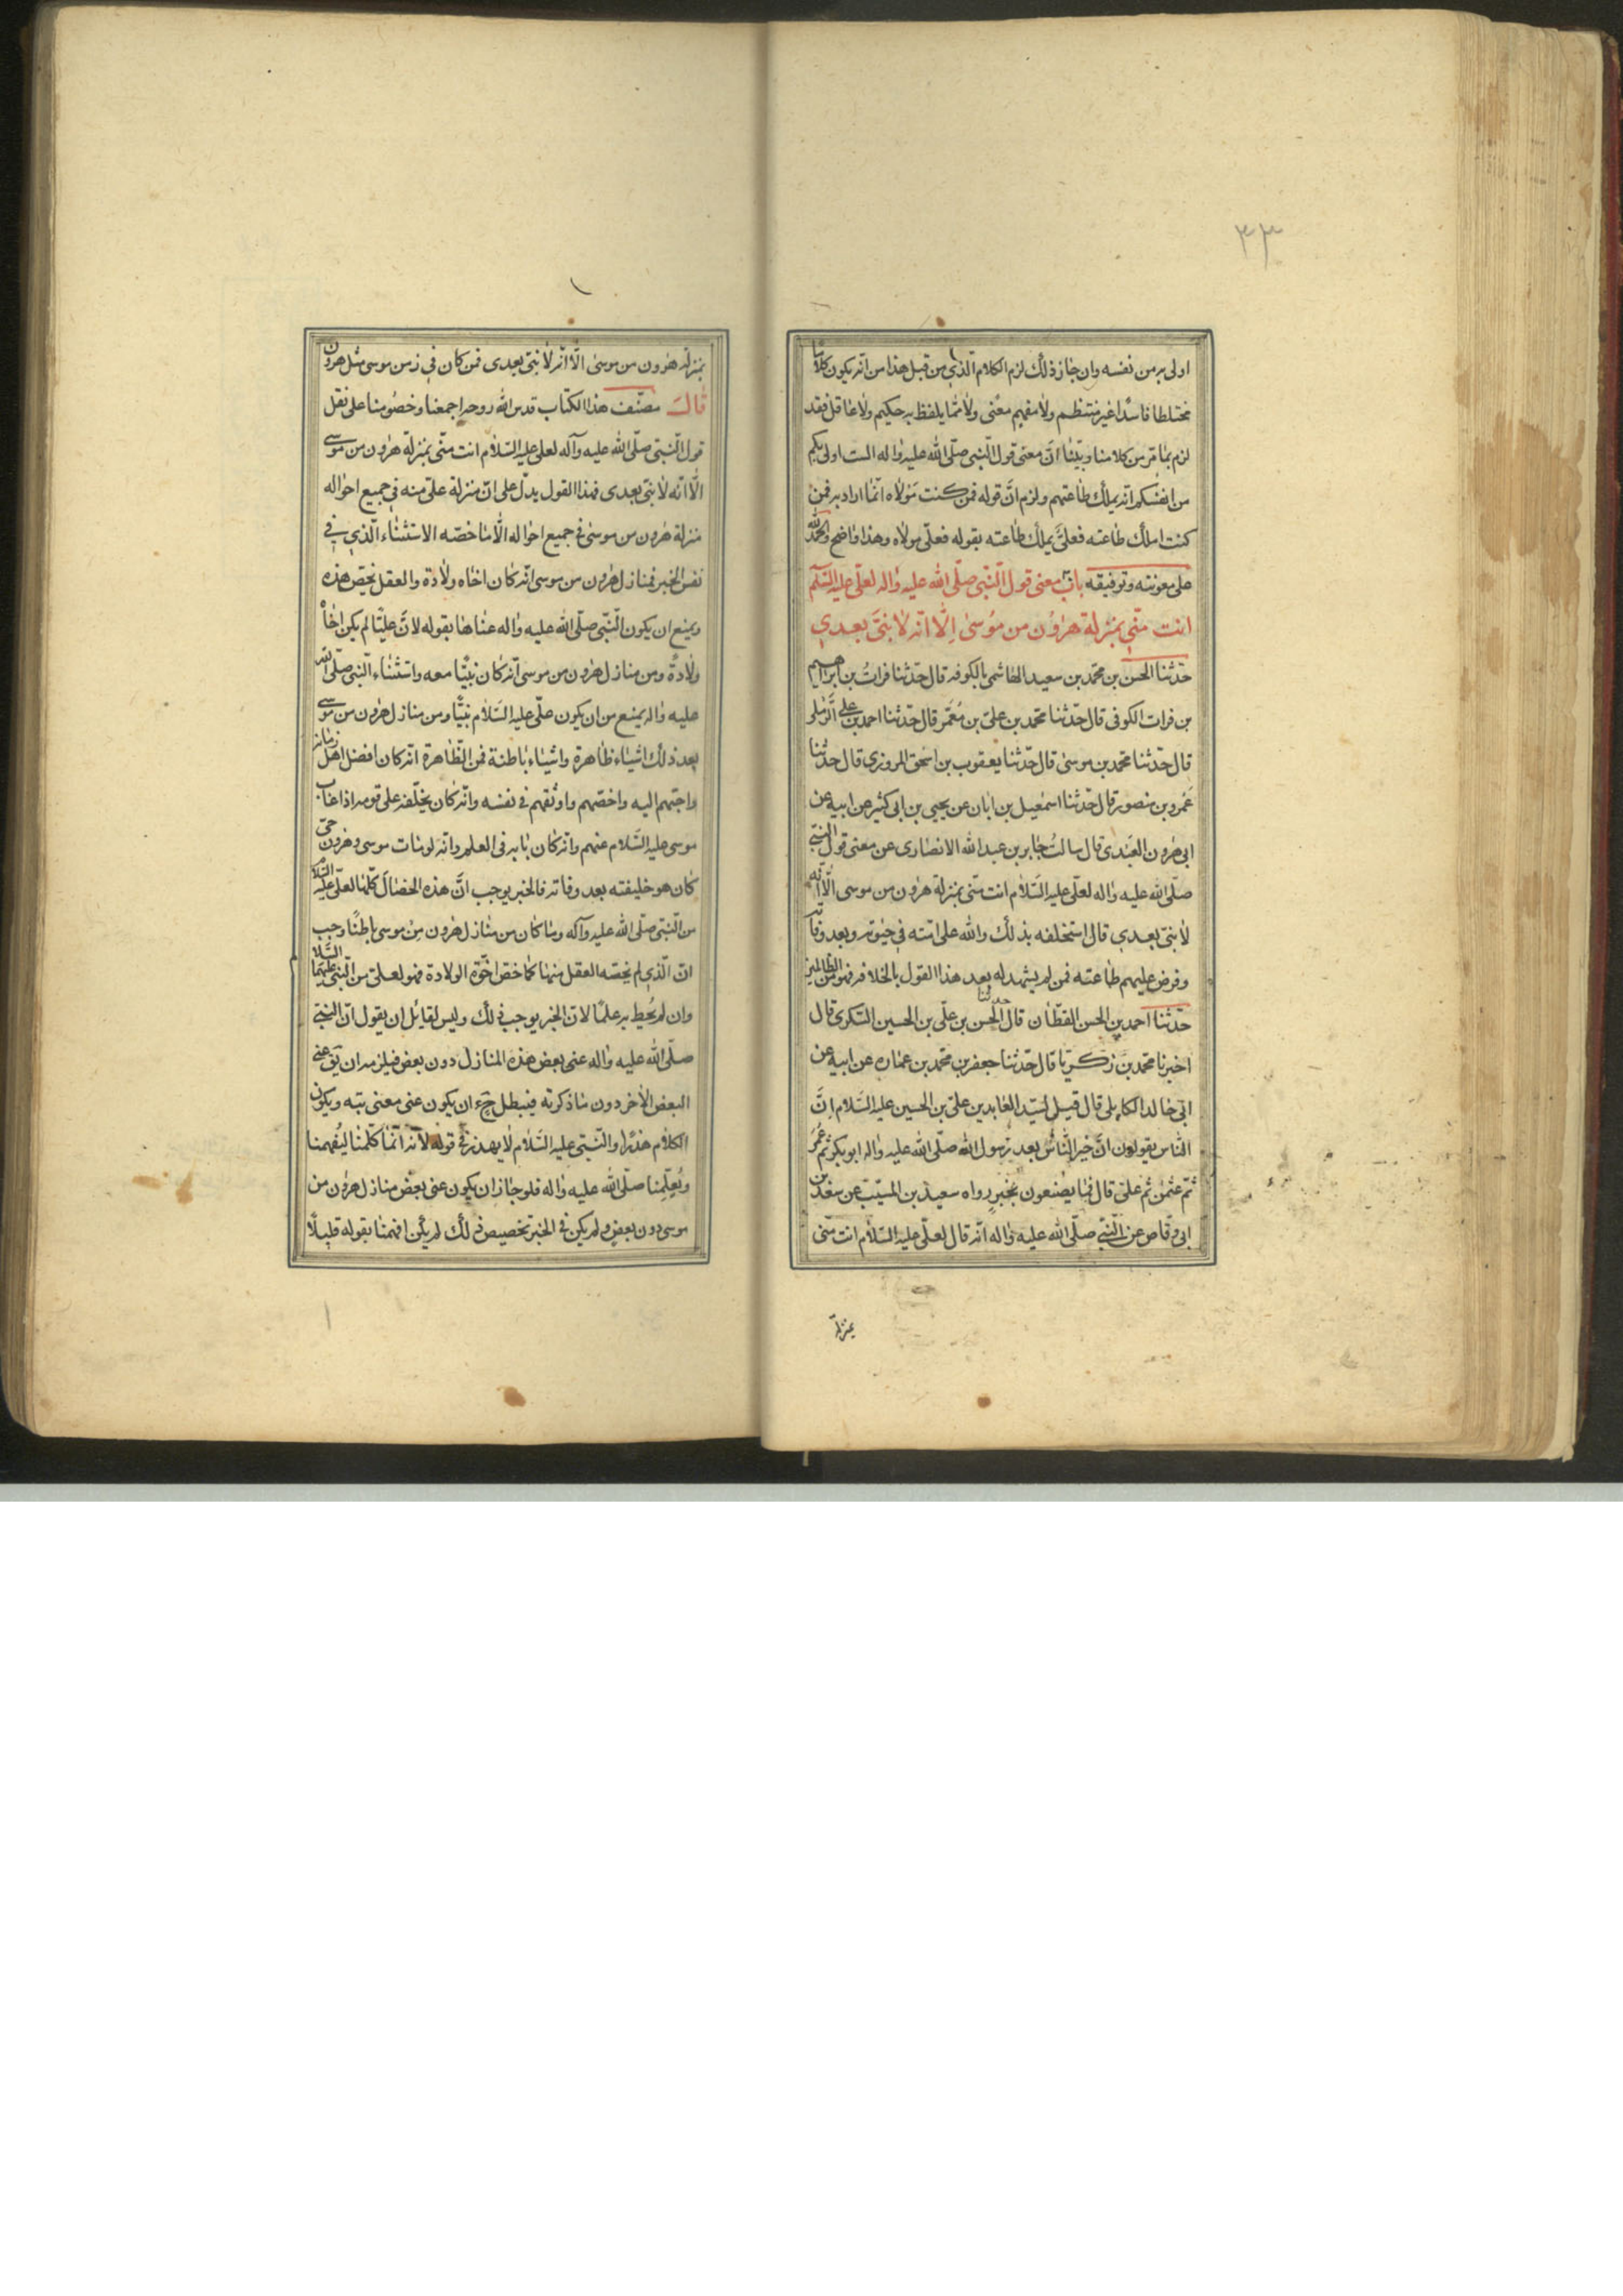 ٣٣
اولی به من نفسه وان جاز ذلك لزم الكلام الّذي من قبل هذا من انّه يكون كلامًا
مختلطا فاسدًا غير منتظم ولا مفهم معنًى ولا ممّا يلفظ به حكيم ولا عاقل فقد
لزم بما مرّ من كلامنا وبيّنا انّ معنى قول النّبى صلّى الله عليه واله الست اولى بكم
من انفسكم انّه يملك طاعتهم ولزم انّ قوله فمن كنت مَوْلاه انّما اراد به فمن
كنت املك طاعته فعلىٌّ يملك طاعته بقوله فعلّى مولاه وهذا واضح والحمدلله
على معونته وتوفيقه باب معنى قول النّبى صلّى الله عليه واله لعلّى عليه السّلم
انت منّى بمنزلة هرٰون من مُوسىٰ اِلّا انّه لا نبىَّ بعدي
حدّثنا الحسن بن محمّد بن سعيد الهاشمى بالكوفه قال حدّثنا فراتُ بن ابراهيم
بن فرات الكوفى قال حدّثنا محمّد بن علىّ بن مُعَمّر قال حدّثنا احمد بن علي الرّملى
قال حدّثنا محمّد بن موسىٰ قال حدّثنا يعقوب بن اسحٰق المروزى قال حدّثنا
عَمرو بن منصور قال حدّثنا اسمٰعيل بن ابان عن يحيى بن ابى كثير عن ابيه عن
ابى هٰرون العَبْدى قال سالتُ جابر بن عبد الله الانصارى عن معنى قول النّبىّ
صلّى الله عليه واله لعلّى عليه السّلام انت منّى بمنزلة هرٰون من موسى الّا انّه
لا نبىّ بعدي قال استخلفه بذلك والله على امّته فى حيٰوته وبعد وفاته
وفرض عليهم طاعته فمن لم يشهد له بعد هذا القول بالخلافه فهو من الظالمين
حدّثنا احمد بن الحسن القطّان قال حدثنا الحسن بن علّى بن الحسين السّكرى قال
اخبرنا محمّد بن زكريّا قال حدّثنا جعفر بن محمّد بن عماره عن ابيه عن
ابى خالد الكابلى قال قيل لسيّد العابدين علىّ بن الحسين عليه السّلام انّ
النّاس يقولون انّ خير النّاس بعد رسول الله صلّى الله عليه واله ابو بكر ثم عُمَرُ
ثمّ عثمٰن ثم علىّ قال فما يصْنعون بخبرٍ رواه سعيد بن المسيّب عن سَعْد بن
ابى وقّاص عن النّبّي صلّى الله عليه واله انّه قال لعلّى عليه السّلام انت منّى
بمنزلة
بمنزلة هٰرون من موسىٰ الّا انّه لا نبىّ بعدى فمن كان فى زمن موسى مثل هرون
قال مصنّف هذا الكتاب قدس الله روحه اجمعنا وخصُومنا على نقل
قول النّبى صلّى الله عليه وآله لعلى عليه السّلام انت منّى بمنزلة هٰرون من موسى
الّا انّه لا نبىّ بعدى فهذا القول يدلّ على انّ منزلة علىّ منه فى جميع احواله
منزلة هٰرون من موسىٰ فى جميع احواله الّا ما خصّه الاستثناء الّذي في
نفس الخبر فمنازل هٰرون من موسى انّه كان اخاه ولادة والعقل يخصّ هذه
ويمنع ان يكون النّبّى صلّى الله عليه واله عناها بقوله لانّ عليّا لم يكن اخاً
ولادةً ومن منازل هٰرون من موسى انّه كان نبيًّا معه واستثناء النّبى صلّى الله
عليه واله يمنع من ان يكون علّى عليه السّلام نبيًّا ومن منازل هٰرون من موسى
بعد ذلك اشياء ظاهرة واشياء باطنة فمن الظّاهرة انّه كان افضل اهل زمانه
واحبّهم اليه واخصّهم واوثقهم فى نفسه وانّه كان يخلّفه على قومه اذا غاب
موسى عليه السّلام عنهم وانّه كان بابه فى العلم وانّه لو مات موسى وهٰرون حىّ
كان هو خليفته بعد وفاته فالخبر يوجب انّ هذه الخصال كلّها لعلّى عليه السّلام
من النّبى صلّى الله عليه وآله وما كان من منازل هٰرون من موسى باطنًا وجب
انّ الّذي لم يخصّه العقل منها كما خصّ اخوّة الولادة فهو لعلىّ من النّبى عليهما السّلا
وان لم يُحِط به علمًا لانّ الخبر يوجب ذلك وليس لقائل ان يقول انّ النبىّ
صلّى الله عليه واله عنى بعض هذه المنازل دون بعض فيلزمه ان يق عنى
البعض الاخر دون ما ذكرته فيبطل ح ان يكون عنى معنى بتّه ويكون
الكلام هذرًا والنّبىّ عليه السّلام لا يهذر فى قوله لانّه انّما كلّمنا ليُفهمنا
ويُعلّمِنا صلّى الله عليه واله فلو جاز ان يكون عنى بعض منازل هٰرون من
موسى دون بعض ولم يكن فى الخبر تخصيص ذلك لم يكن افهمنا بقوله قليلًا